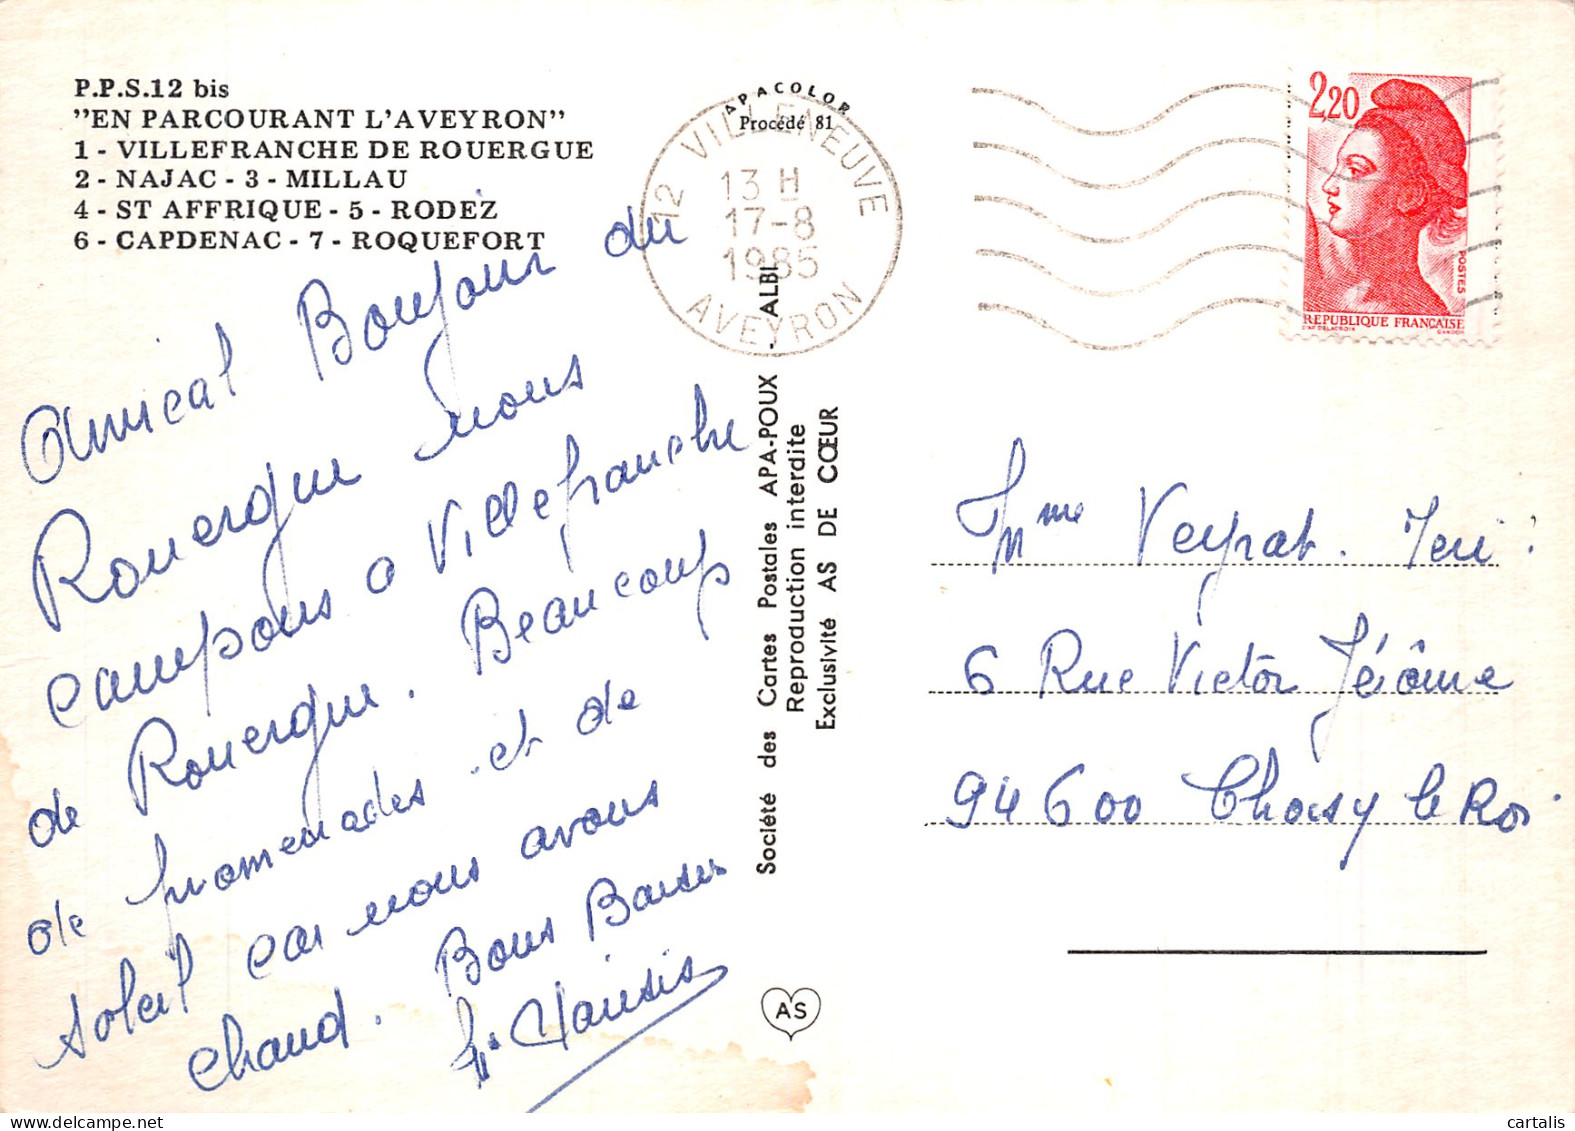 P.P.S.12 bis
"EN PARCOURANT L'AVEYRON"
1 - VILLEFRANCHE DE ROUERGUE
2 - NAJAC - 3 - MILLAU
4 - ST AFFRIQUE - 5 - RODEZ
6 - CAPDENAC - 7 - ROQUEFORT
Amical Bonjour du
Rouergue nous
campons a Villefranche
de Rouergue. Beaucoup
de promenades et de
soleil car nous avons
chaud. Bons Baisers
APACOLOR
Procédé 81
12 VILLENEUVE
13 H
17-8
1985
AVEYRON
Société des Cartes Postales APA-POUX - ALBI
Reproduction interdite
Exclusivité AS DE CŒUR
AS
2,20
POSTES
REPUBLIQUE FRANÇAISE
D'AP. DELACROIX GANDON
Mme Veyrat.
6 Rue Victor Jérôme
94600 Choisy le Roi.
cartalis
www.delcampe.net